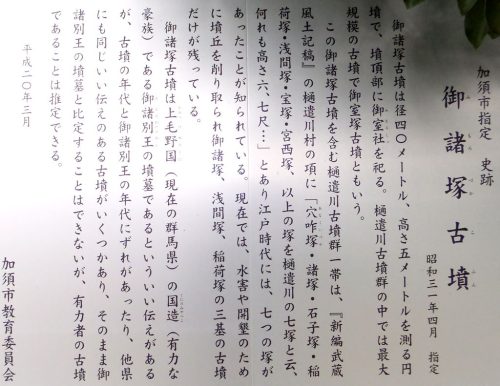 加須市指定 史跡
御諸塚古墳
昭和三一年四月 指定
御諸塚古墳は径四〇メートル、高さ五メートルを測る円
墳で、墳頂部に御室社を祀る。樋遣川古墳群の中では最大
規模の古墳で御室塚古墳ともいう。
この御諸塚古墳を含む樋遣川古墳群一帯は、『新編武蔵
風土記稿』の樋遣川村の項に「穴咋塚・諸塚・石子塚・稲
荷塚・浅間塚・宝塚・宮西塚、以上の塚を樋遣川の七塚と云、
何れも高さ六、七尺…」とあり江戸時代には、七つの塚が
あったことが知られている。現在では、水害や開墾のため
に墳丘を削り取られ御諸塚、浅間塚、稲荷塚の三基の古墳
だけが残っている。
御諸塚古墳は上毛野国（現在の群馬県）の国造（有力な
豪族）である御諸別王の墳墓であるといういい伝えがある
が、古墳の年代と御諸別王の年代にずれがあったり、他県
にも同じいい伝えのある古墳がいくつかあり、そのまま御
諸別王の墳墓と比定することはできないが、有力者の古墳
であることは推定できる。
平成二〇年三月
加須市教育委員会